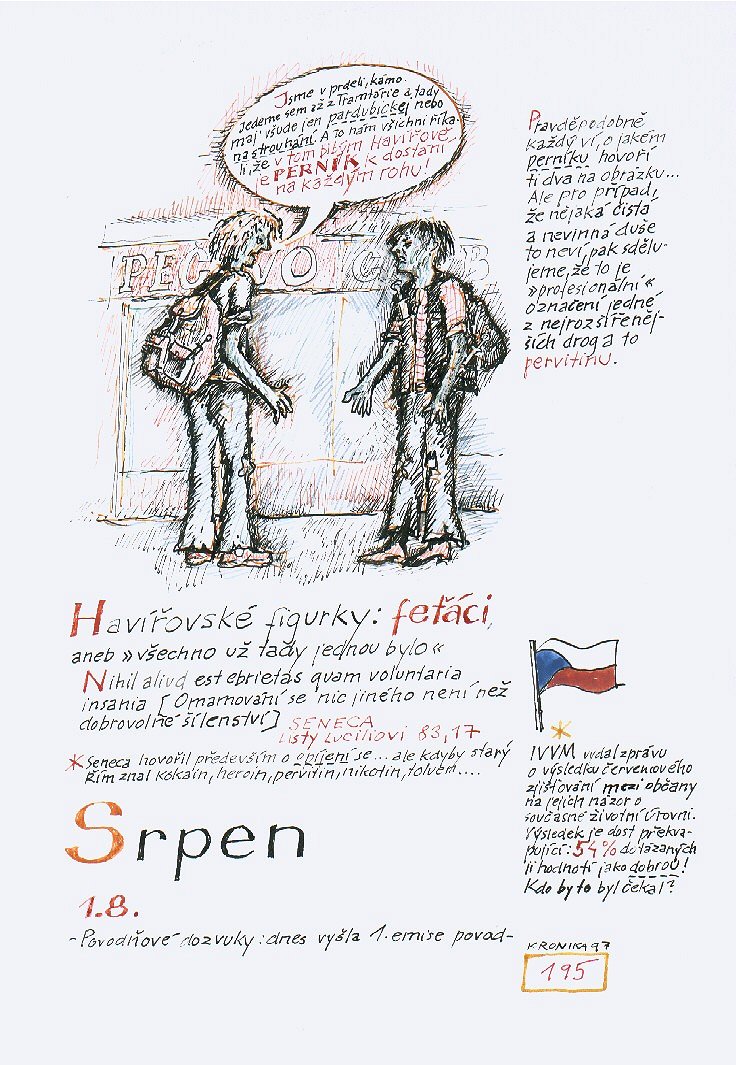 Jsme v prdeli, kámo.
Jedeme sem až z Tramtárie a tady
maj' všude jen pardubickej nebo
na strouhání. A to nám všichni říka-
li, že v tom blbým Havířově
je PERNÍK k dostání
na každým rohu!
Pravděpodobně
každý ví, o jakém
perníku hovoří
ti dva na obrázku...
Ale pro případ,
že nějaká čistá
a nevinná duše
to neví, pak sdělu-
jeme, že to je
»profesionální«
označení jedné
z nejrozšířeněj-
ších drog a to
pervitinu.
Havířovské figurky: feťáci,
aneb »všechno už tady jednou bylo«
Nihil aliud est ebrietas quam voluntaria
insania [Omamování se nic jiného není než
dobrovolné šílenství] SENECA
Listy Luciliovi 83,17
* Seneca hovořil především o opíjení se... ale kdyby starý
Řím znal kokain, heroin, pervitin, nikotin, toluen....
Srpen
1.8.
- Povodňové dozvuky: dnes vyšla 1. emise povod-
*
IVVM vydal zprávu
o výsledku červencového
zjišťování mezi občany
na jejich názor o
současné životní úrovni.
Výsledek je dost překva-
pující: 54% dotázaných
ji hodnotí jako dobrou!
Kdo by to byl čekal?
KRONIKA 97
195